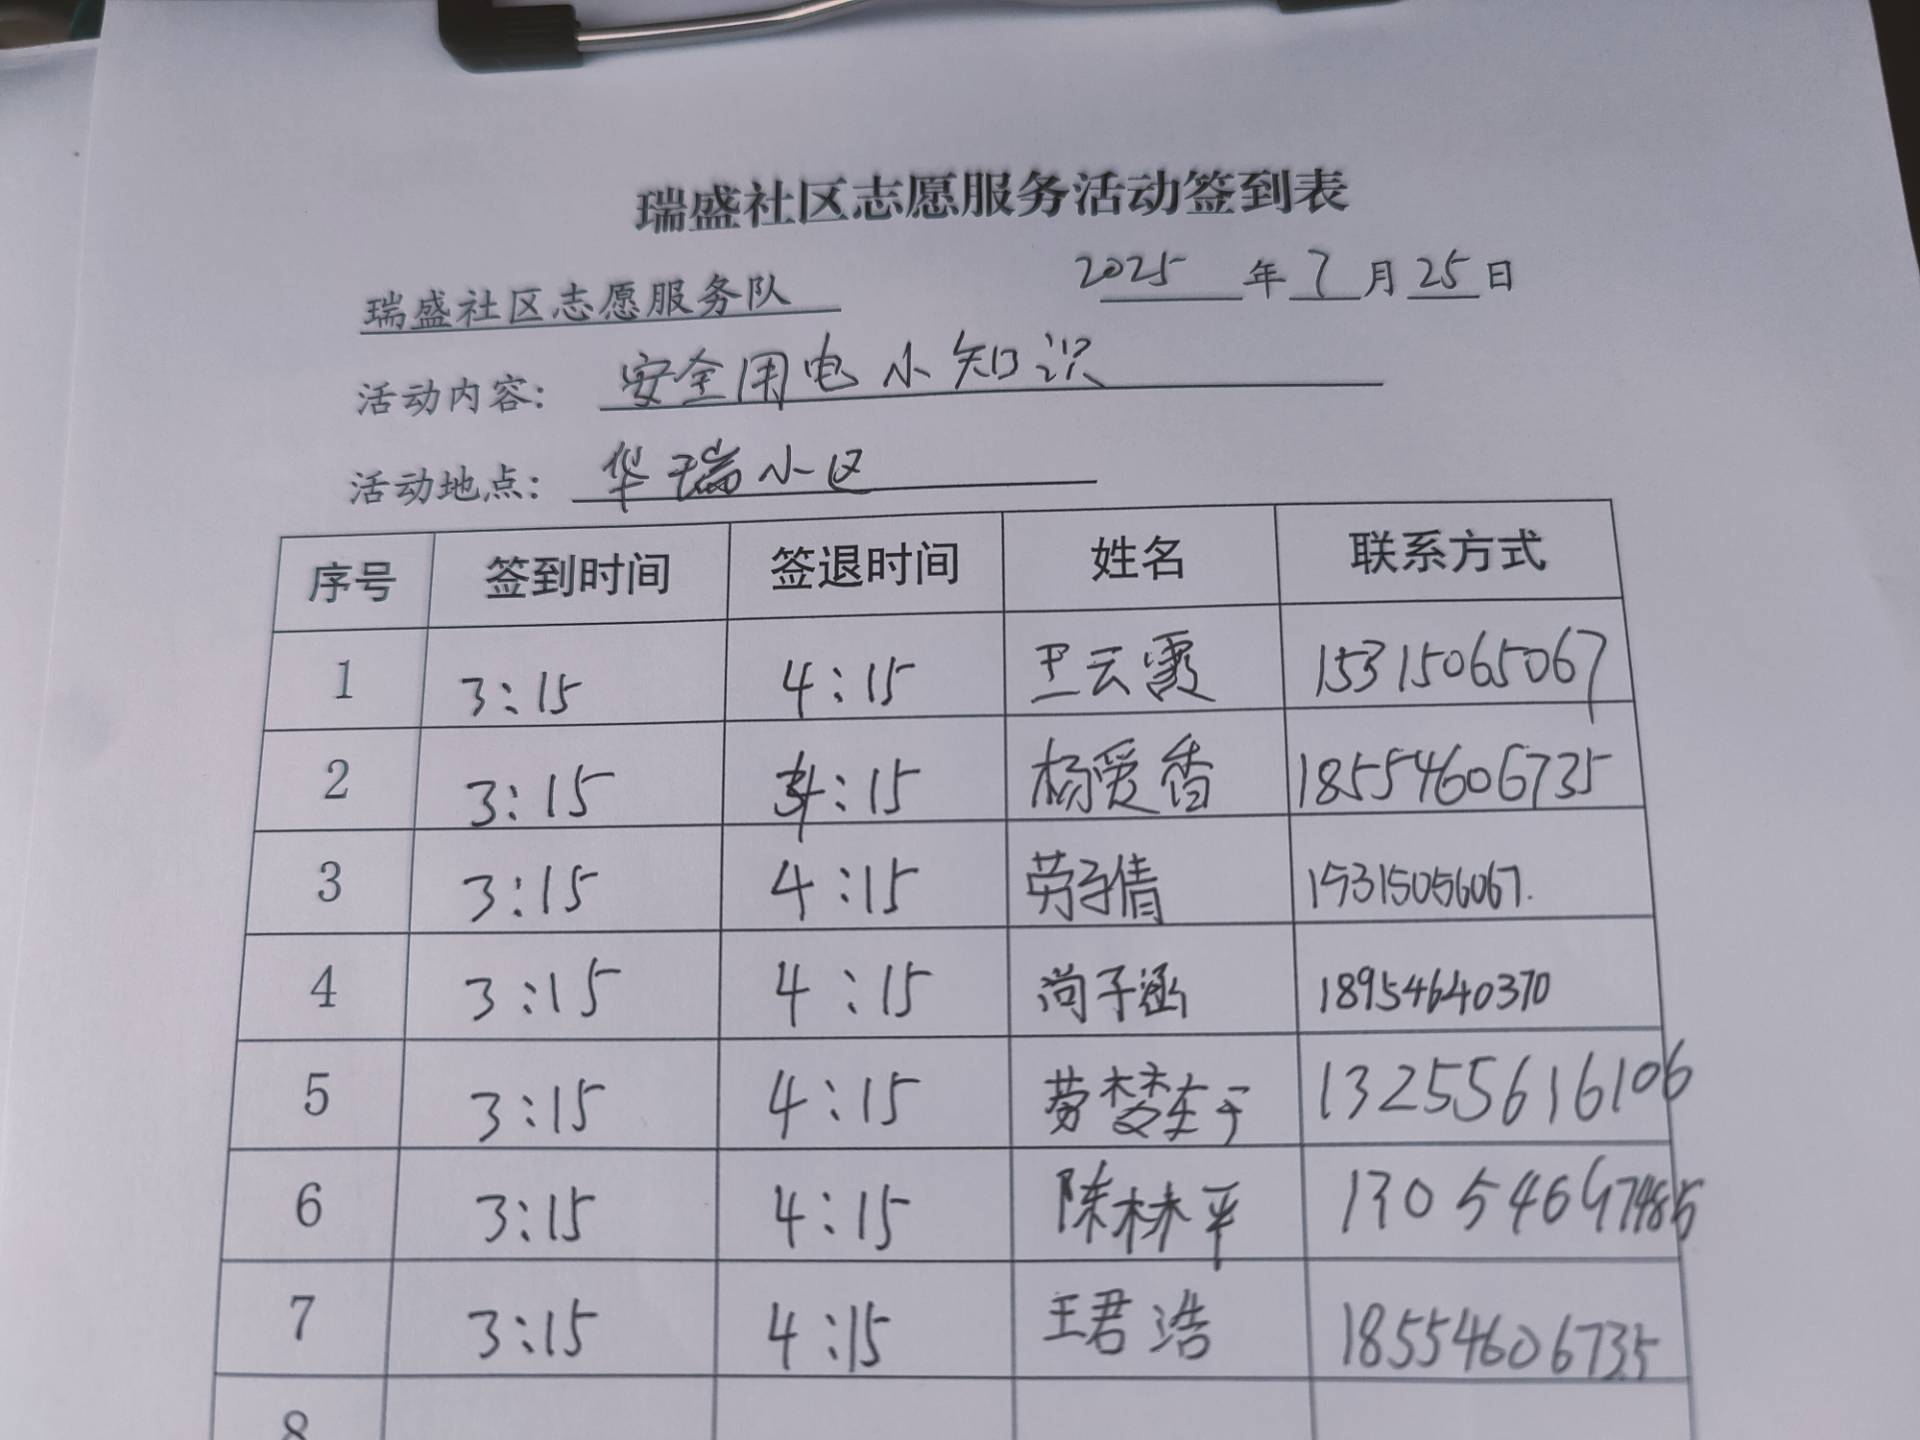 瑞盛社区志愿服务活动签到表
瑞盛社区志愿服务队 2025年7月25日
活动内容：安全用电小知识
活动地点：华瑞小区
序号 签到时间 签退时间 姓名 联系方式
1 3:15 4:15 王云霞 15315065067
2 3:15 4:15 杨爱香 18554606735
3 3:15 4:15 劳子倩 15315056067.
4 3:15 4:15 尚子涵 18954640370
5 3:15 4:15 13255616106
6 3:15 4:15 陈林平
7 3:15 4:15 王君浩 18554606735
8